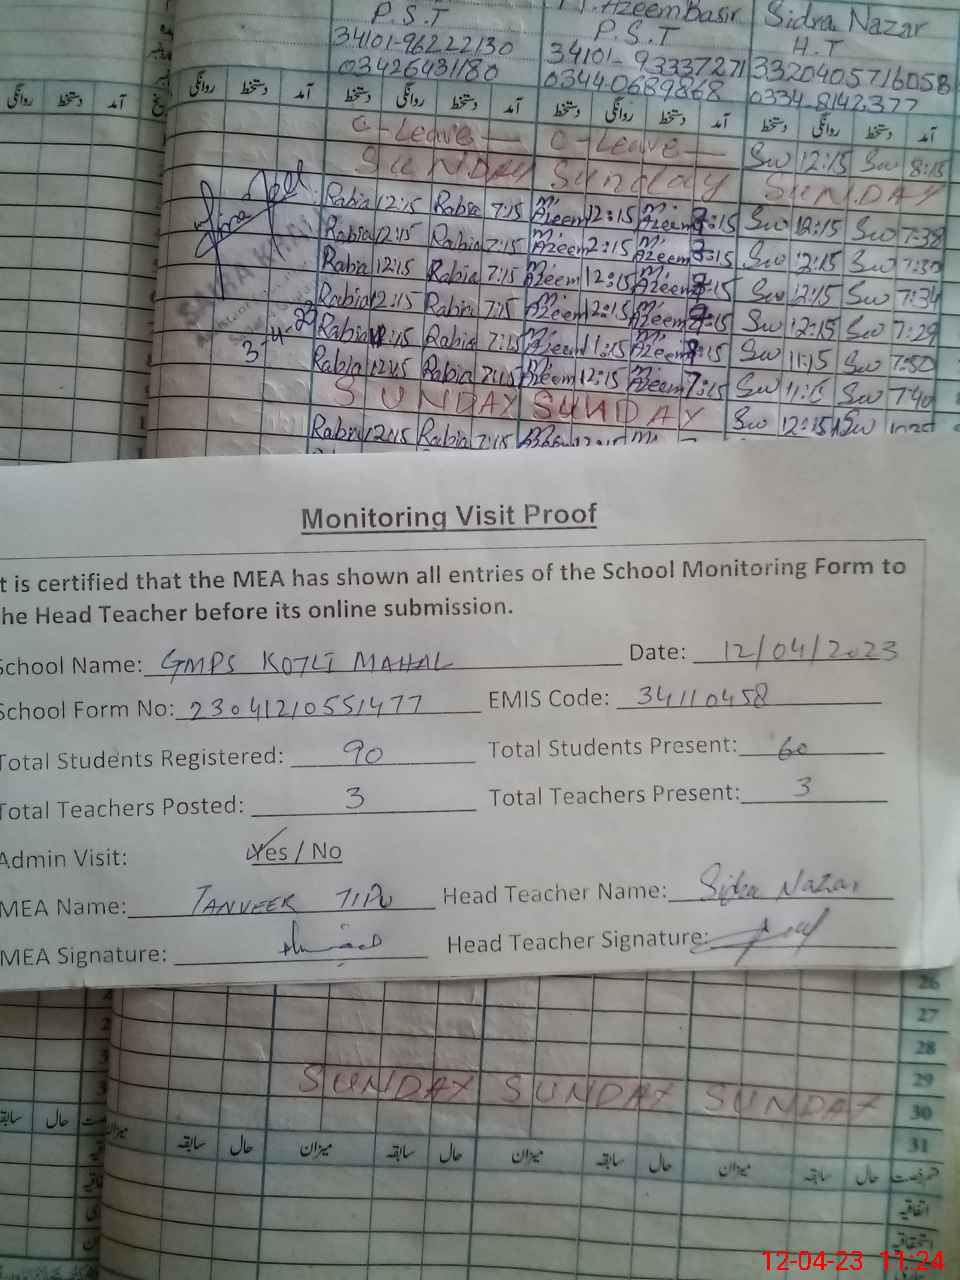 P.S.T M. Azeem Basir Sidra Nazar
34101-96222130 P.S.T H.T
03426431180 34101-93337271 3320405716058
0344-0689868 0334-8142377
روانگی دستخط آمد دستخط روانگی دستخط آمد دستخط روانگی دستخط آمد
C-Leave C-Leave Sw 12:15 Sw 8:15
SUNDAY Sunday SUNDAY
Rabia 12:15 Rabia 7:15 M. Azeem 12:15 M. Azeem :15 Sw 12:15 Sw 7:38
Rabia 12:15 Rabia 7:15 M. Azeem 2:15 M. Azeem :15 Sw 12:15 Sw 7:30
Rabia 12:15 Rabia 7:15 M. Azeem 12:15 M. Azeem :15 Sw 12:15 Sw 7:34
Rabia 12:15 Rabia 7:15 Azeem 12:15 M. Azeem :15 Sw 12:15 Sw 7:29
3-4-23 Rabia :15 Rabia 7:15 Azeem 11:15 Azeem :15 Sw 11:15 Sw 7:50
Rabia 12:15 Rabia 7:15 Azeem 12:15 Azeem 7:15 Sw 11:15 Sw 7:40
SUNDAY SUNDAY
Rabia 12:15 Rabia 7:15 Sw 12:15 Sw
Monitoring Visit Proof
t is certified that the MEA has shown all entries of the School Monitoring Form to
he Head Teacher before its online submission.
School Name: GMPS KOTLI MAHAL Date: 12/04/2023
School Form No: 23041210551477 EMIS Code: 34110458
Total Students Registered: 90 Total Students Present: 60
Total Teachers Posted: 3 Total Teachers Present: 3
Admin Visit: Yes / No
MEA Name: TANVEER TIPU Head Teacher Name: Sidra Nazar
MEA Signature: Head Teacher Signature:
26
27
28
29
SUNDAY SUNDAY SUNDAY 30
31
سابقہ حال میزان سابقہ حال میزان سابقہ حال میزان سابقہ حال قسم رخصت
اتفاقیہ
استحقاقیہ
12-04-23 11:24